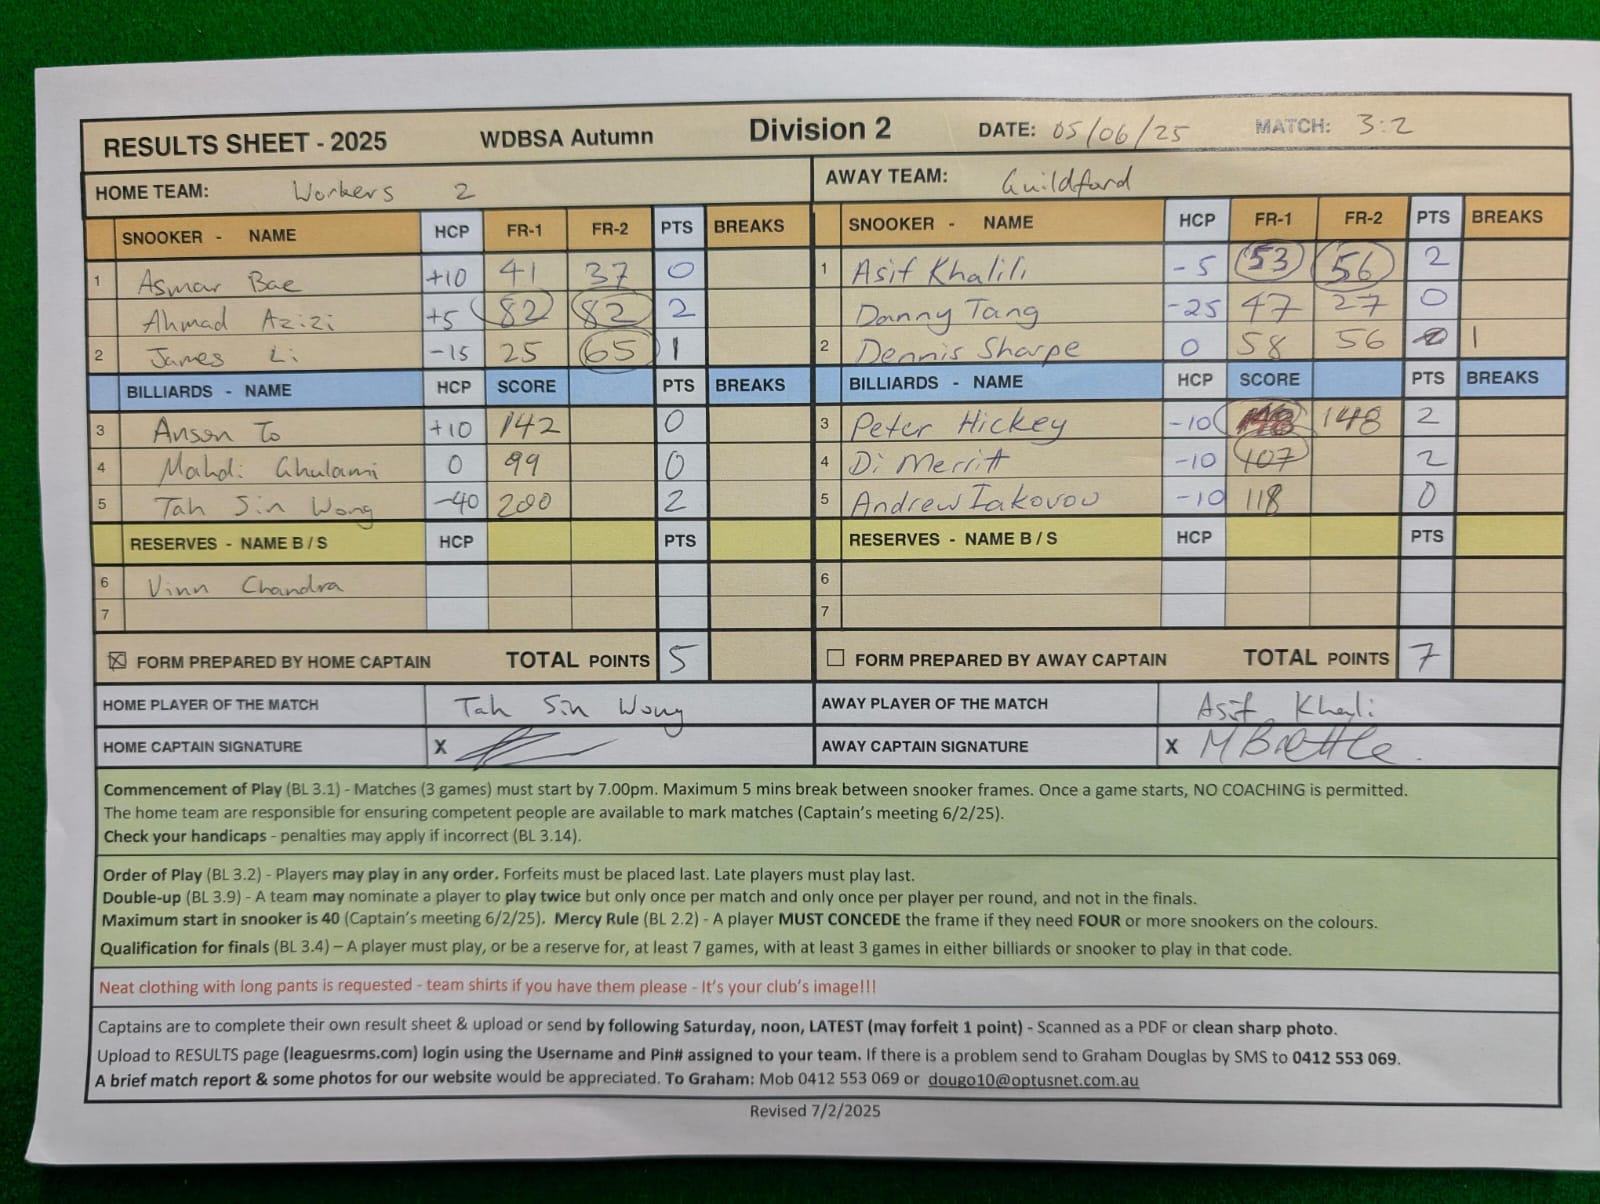 RESULTS SHEET - 2025 WDBSA Autumn Division 2 DATE: 05/06/25 MATCH: 3:2
HOME TEAM: Workers 2 AWAY TEAM: Guildford
SNOOKER - NAME HCP FR-1 FR-2 PTS BREAKS SNOOKER - NAME HCP FR-1 FR-2 PTS BREAKS
1 Asmar Bae +10 41 37 0 1 Asif Khalili -5 53 56 2
Ahmad Azizi +5 82 82 2 Danny Tang -25 47 27 0
2 James Li -15 25 65 1 2 Dennis Sharpe 0 58 56 1
BILLIARDS - NAME HCP SCORE PTS BREAKS BILLIARDS - NAME HCP SCORE PTS BREAKS
3 Anson To +10 142 0 3 Peter Hickey -10 148 2
4 Mahdi Ghulami 0 99 0 4 Di Merritt -10 107 2
5 Tah Sin Wong -40 200 2 5 Andrew Iakovou -10 118 0
RESERVES - NAME B / S HCP PTS RESERVES - NAME B / S HCP PTS
6 Vinn Chandra 6
7 7
FORM PREPARED BY HOME CAPTAIN TOTAL POINTS 5 FORM PREPARED BY AWAY CAPTAIN TOTAL POINTS 7
HOME PLAYER OF THE MATCH Tah Sin Wong AWAY PLAYER OF THE MATCH Asif Khali
HOME CAPTAIN SIGNATURE X AWAY CAPTAIN SIGNATURE X
Commencement of Play (BL 3.1) - Matches (3 games) must start by 7.00pm. Maximum 5 mins break between snooker frames. Once a game starts, NO COACHING is permitted.
The home team are responsible for ensuring competent people are available to mark matches (Captain's meeting 6/2/25).
Check your handicaps - penalties may apply if incorrect (BL 3.14).
Order of Play (BL 3.2) - Players may play in any order. Forfeits must be placed last. Late players must play last.
Double-up (BL 3.9) - A team may nominate a player to play twice but only once per match and only once per player per round, and not in the finals.
Maximum start in snooker is 40 (Captain's meeting 6/2/25). Mercy Rule (BL 2.2) - A player MUST CONCEDE the frame if they need FOUR or more snookers on the colours.
Qualification for finals (BL 3.4) – A player must play, or be a reserve for, at least 7 games, with at least 3 games in either billiards or snooker to play in that code.
Neat clothing with long pants is requested - team shirts if you have them please - It's your club's image!!!
Captains are to complete their own result sheet & upload or send by following Saturday, noon, LATEST (may forfeit 1 point) - Scanned as a PDF or clean sharp photo.
Upload to RESULTS page (leaguesrms.com) login using the Username and Pin# assigned to your team. If there is a problem send to Graham Douglas by SMS to 0412 553 069.
A brief match report & some photos for our website would be appreciated. To Graham: Mob 0412 553 069 or dougo10@optusnet.com.au
Revised 7/2/2025